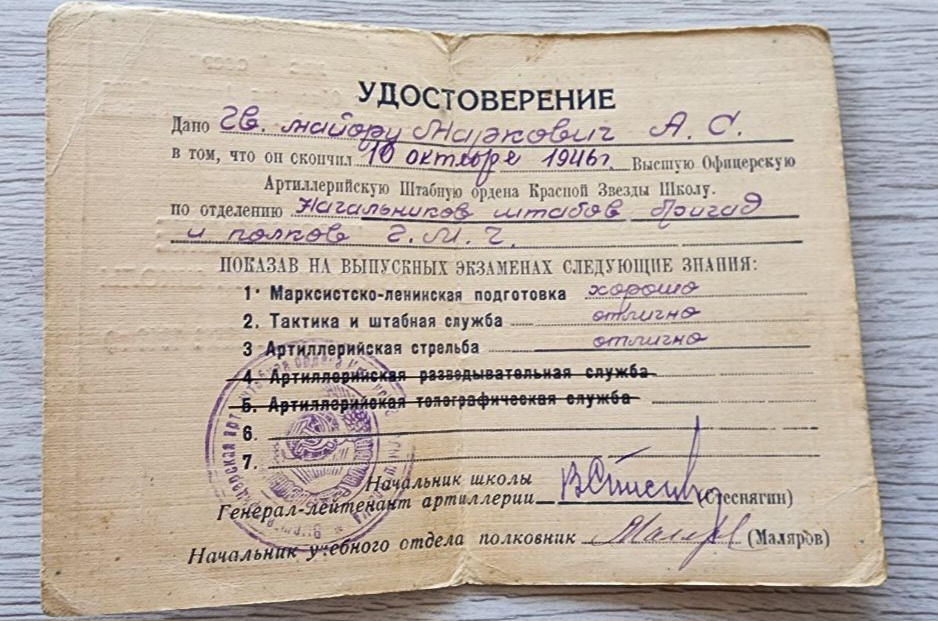 УДОСТОВЕРЕНИЕ
Дано Гв. майору Маркович А. С.
в том, что он скончил 10 октября 1946 г. Высшую Офицерскую
Артиллерийскую Штабную ордена Красной Звезды Школу.
по отделению Начальников штабов бригад
и полков Г. М. Ч.
ПОКАЗАВ НА ВЫПУСКНЫХ ЭКЗАМЕНАХ СЛЕДУЮЩИЕ ЗНАНИЯ:
1. Марксистско-ленинская подготовка хорошо
2. Тактика и штабная служба отлично
3 Артиллерийская стрельба отлично
4. Артиллерийская разведывательная служба
5. Артиллерийская топографическая служба
6.
7.
Начальник школы
Генерал-лейтенант артиллерии (Стеснягин)
Начальник учебного отдела полковник (Маляров)